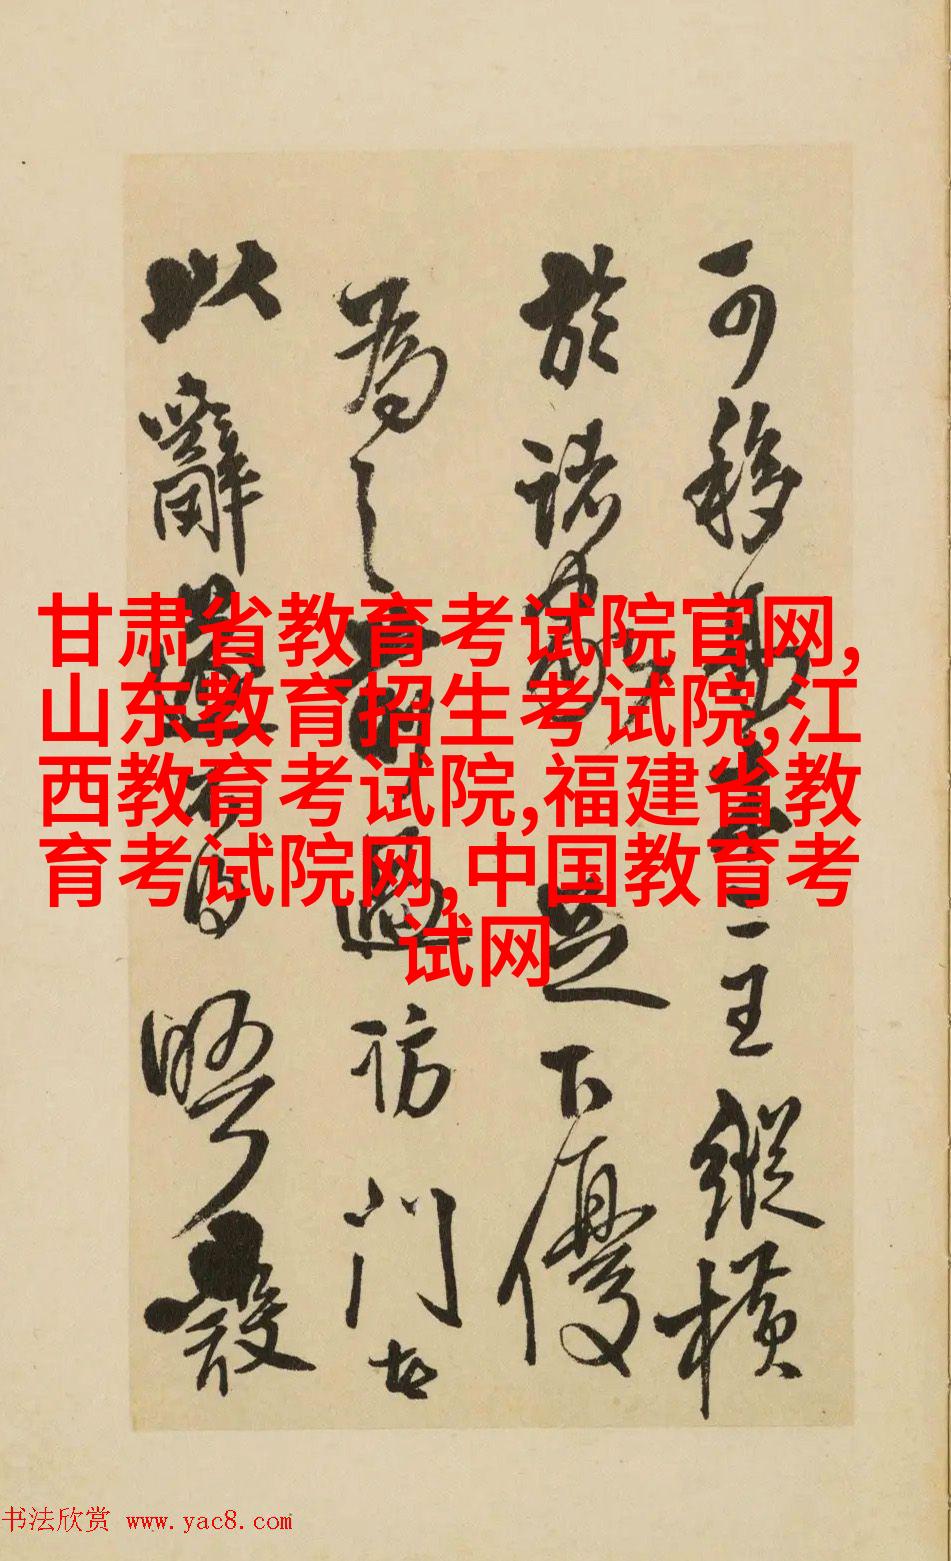 可移二王縱橫
於諸家足下優
為之過訪門
以辭
甘肃省教育考试院官网,
山东教育招生考试院,江
西教育考试院,福建省教
育考试院网,中国教育考
试网
书法欣赏 www.yac8.com